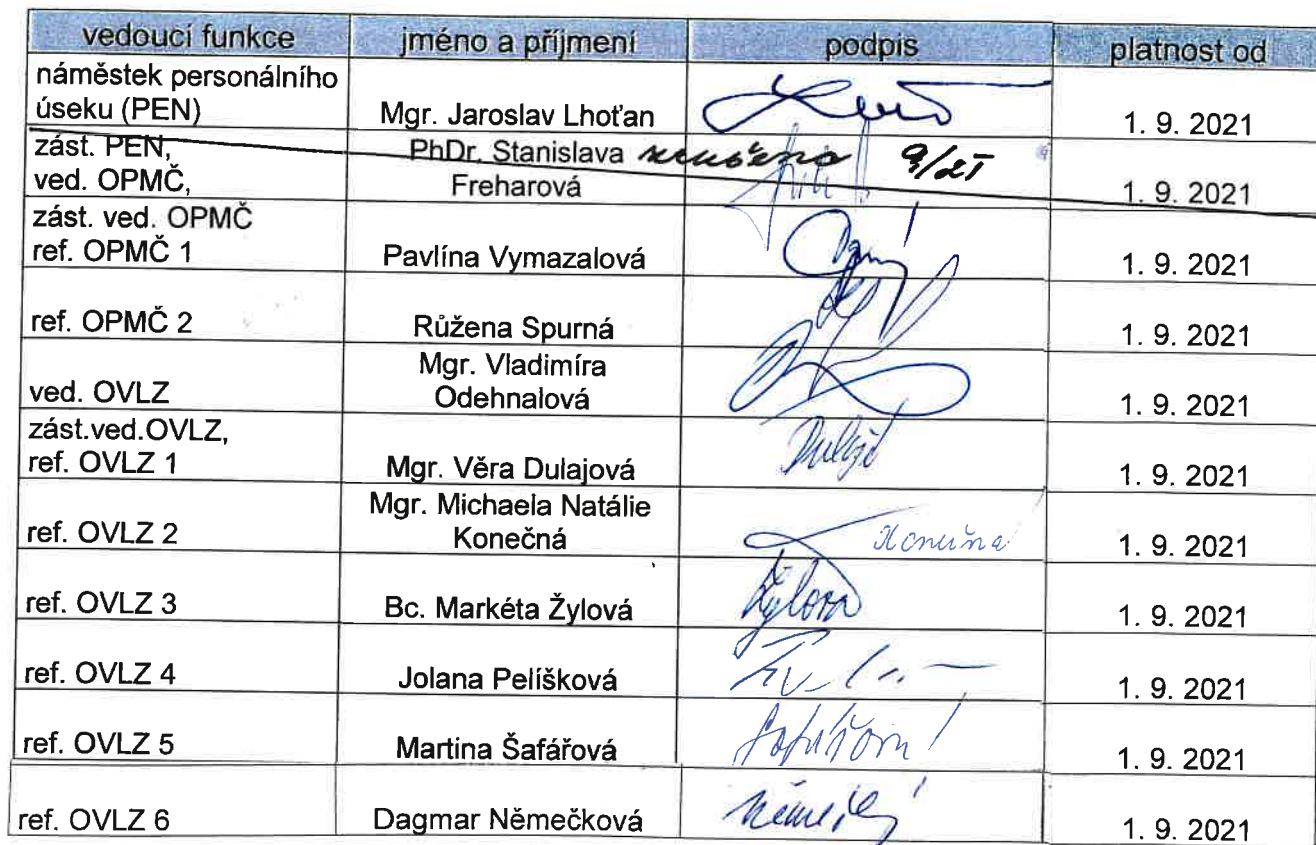 vedoucí funkce jméno a příjmení podpis platnost od
náměstek personálního
úseku (PEN) Mgr. Jaroslav Lhoťan 1. 9. 2021
zást. PEN, PhDr. Stanislava 9/21
ved. OPMČ, Freharová 1. 9. 2021
zást. ved. OPMČ
ref. OPMČ 1 Pavlína Vymazalová 1. 9. 2021
ref. OPMČ 2 Růžena Spurná 1. 9. 2021
Mgr. Vladimíra
ved. OVLZ Odehnalová 1. 9. 2021
zást.ved.OVLZ,
ref. OVLZ 1 Mgr. Věra Dulajová 1. 9. 2021
Mgr. Michaela Natálie
ref. OVLZ 2 Konečná 1. 9. 2021
ref. OVLZ 3 Bc. Markéta Žylová Žylová 1. 9. 2021
ref. OVLZ 4 Jolana Pelíšková 1. 9. 2021
ref. OVLZ 5 Martina Šafářová 1. 9. 2021
ref. OVLZ 6 Dagmar Němečková 1. 9. 2021